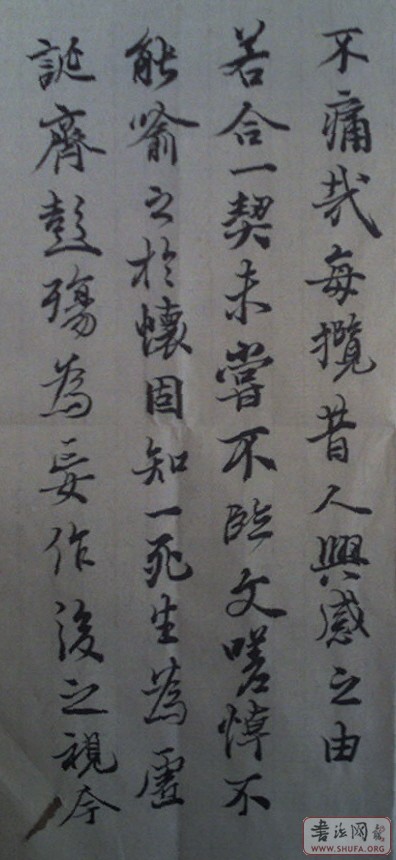 不痛哉每攬昔人興感之由
若合一契未嘗不臨文嗟悼不
能喻之於懷固知一死生為虛
誕齊彭殤為妄作後之視今
书法网
WWW.SHUFA.ORG